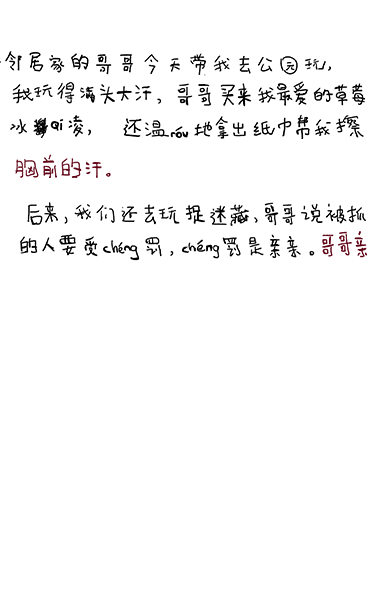 邻居家的哥哥今天带我去公园玩，
我玩得满头大汗，哥哥买来我最爱的草莓
冰qi凌，还温róu地拿出纸巾帮我擦
胸前的汗。
后来，我们还去玩捉迷藏，哥哥说被抓
的人要受chéng罚，chéng罚是亲亲。哥哥亲